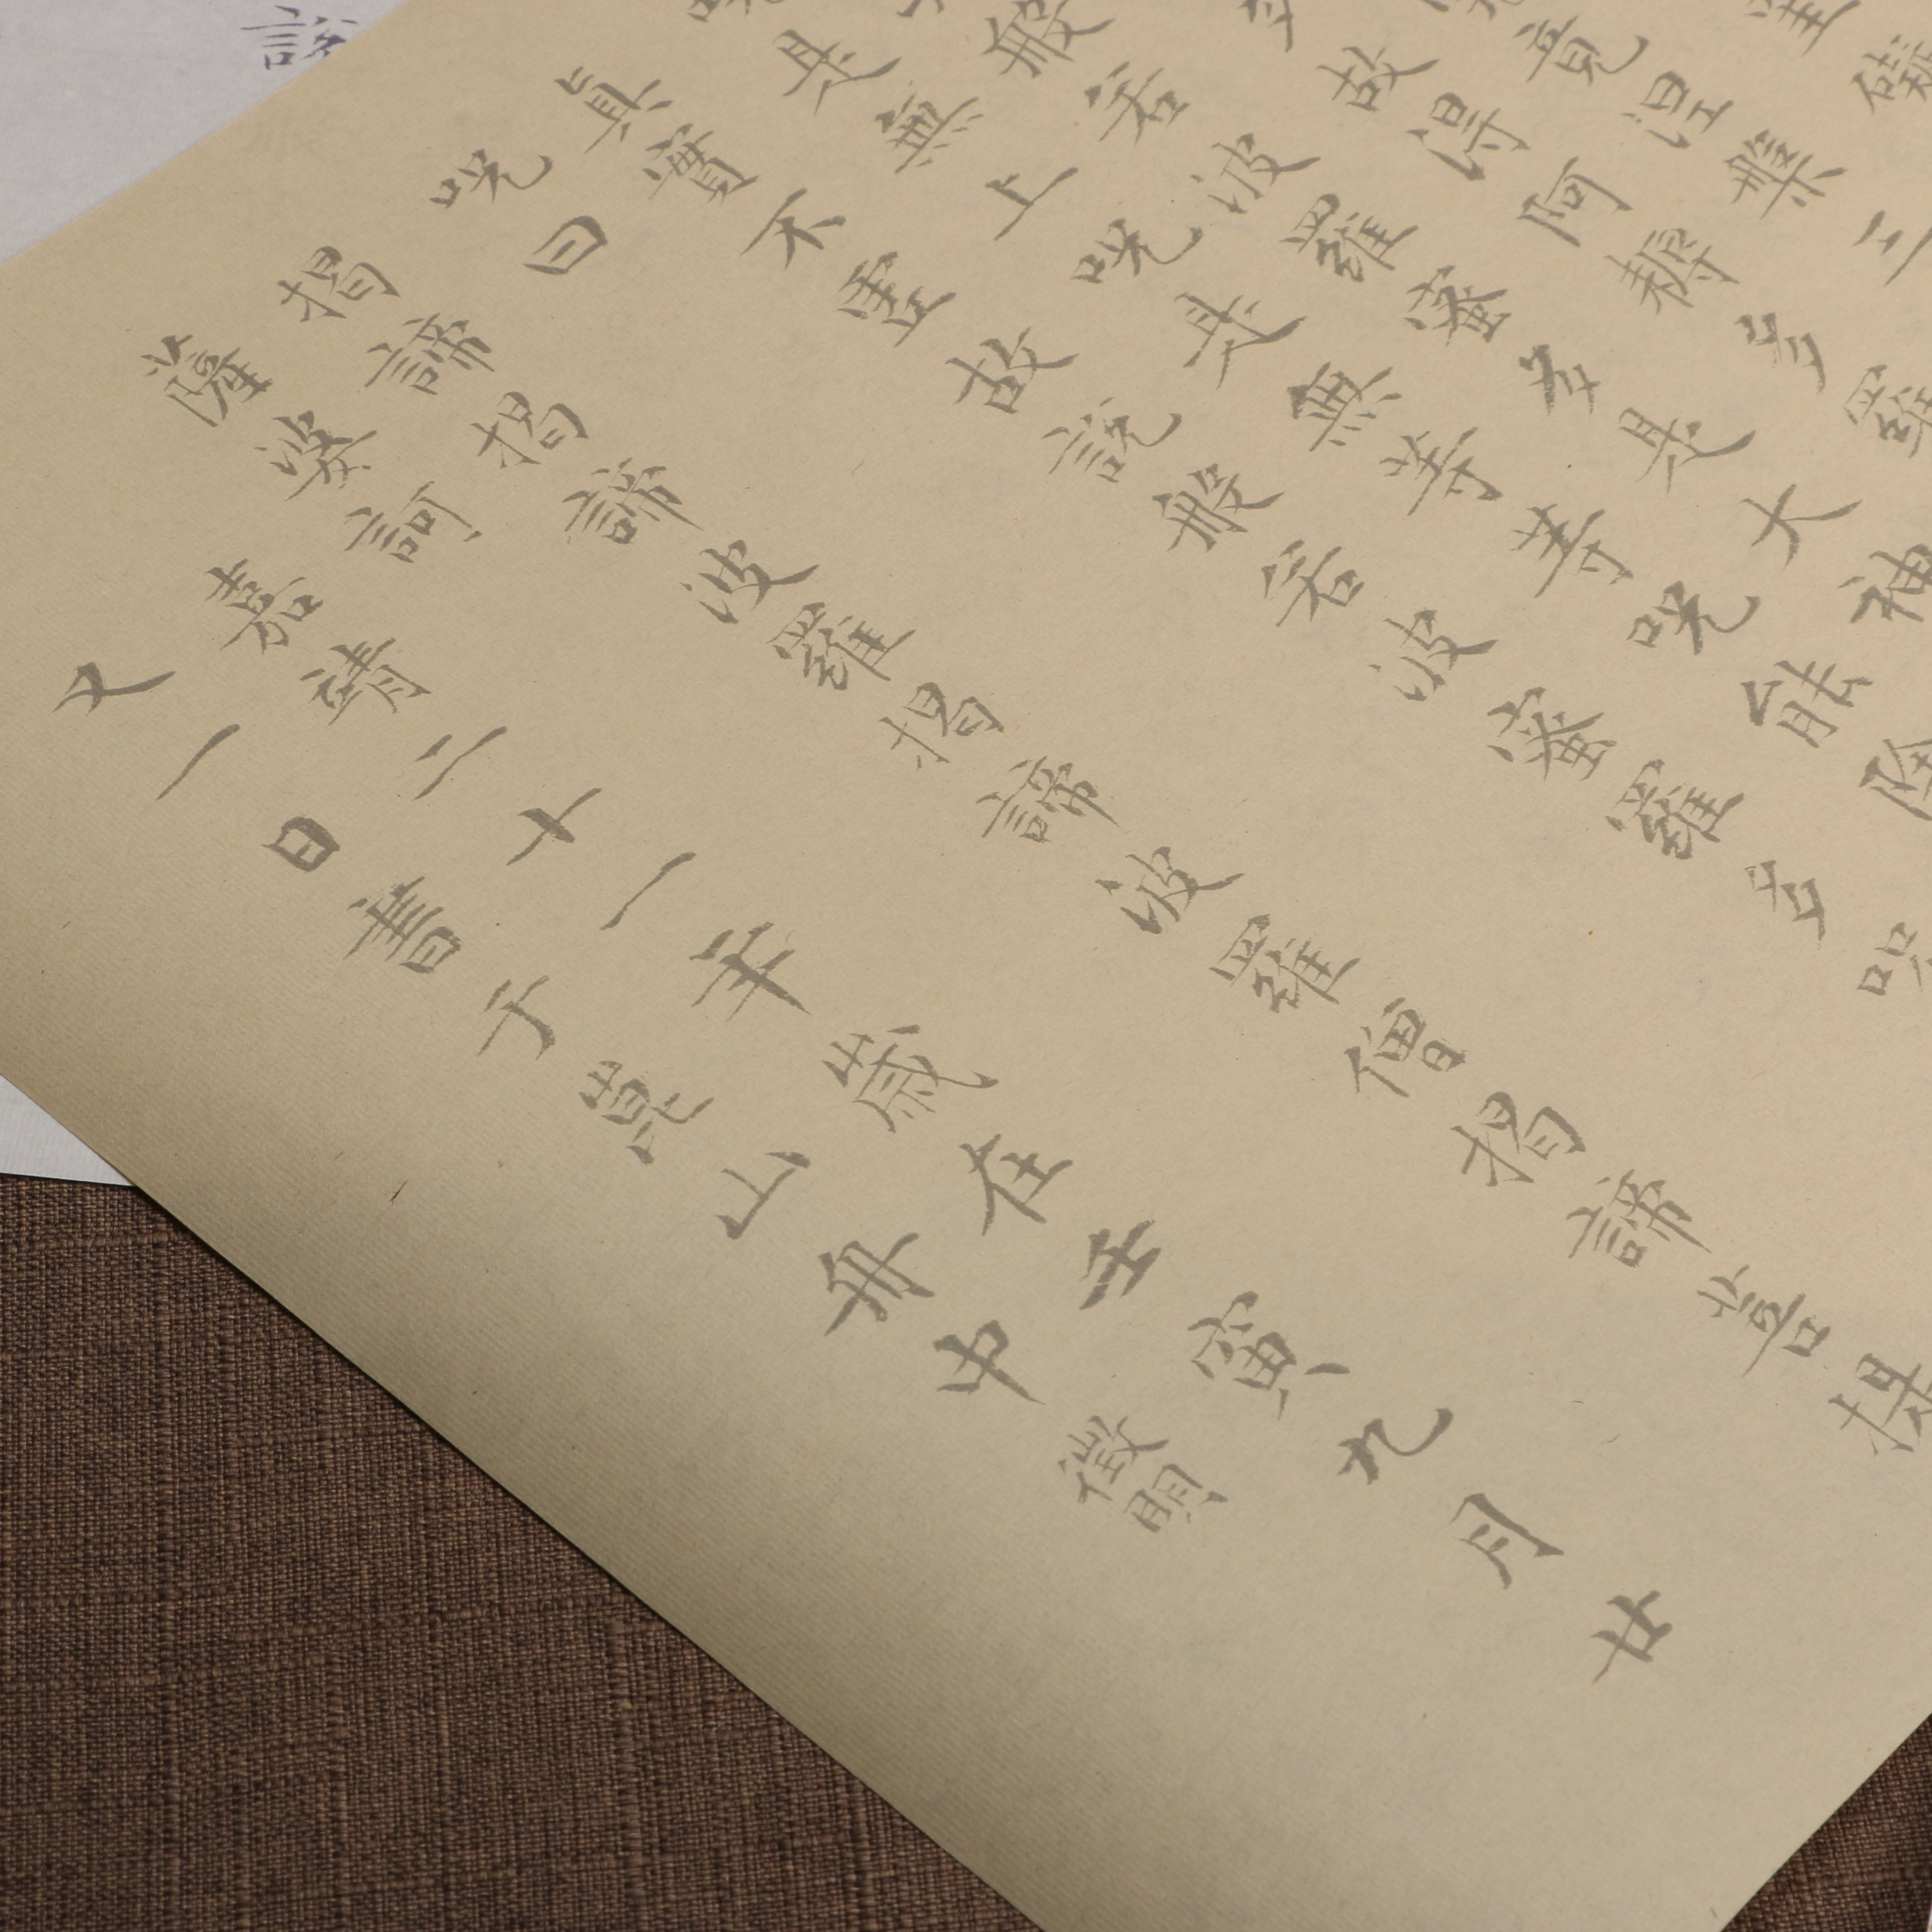 礙
竟涅槃三
故得阿耨多羅
般若波羅蜜多是大神
是無上呪是無等等呪能除
眞實不虛故說般若波蜜羅多呪
呪曰
揭諦揭諦波羅揭諦波羅僧揭諦菩提
薩婆訶
嘉靖二十一年歲在壬寅九月廿
又一日書于崑山舟中徵明
說